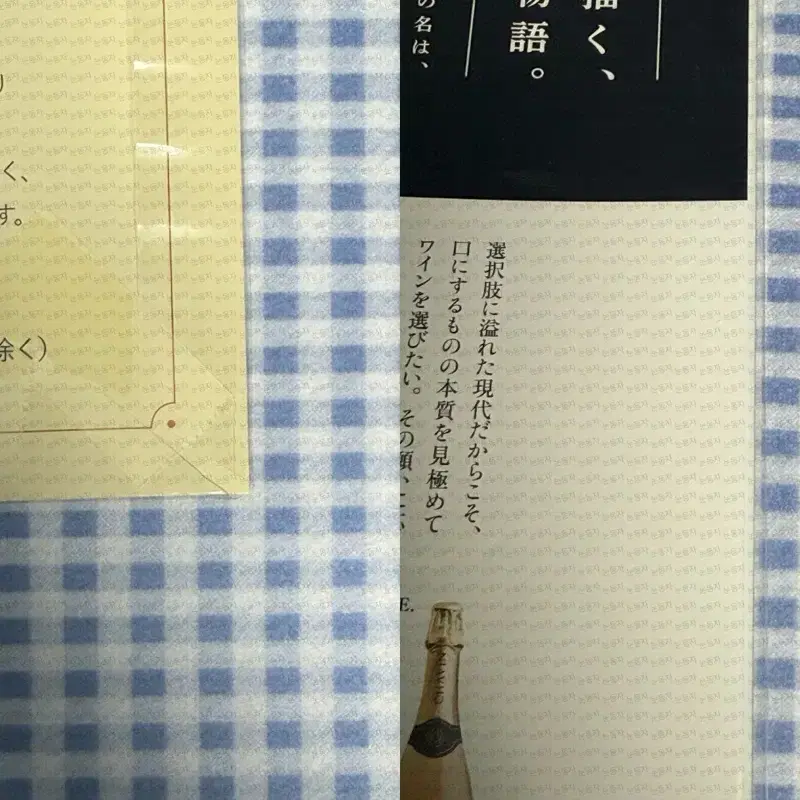 く、
す。
除く）
描く、
物語。
の名は、
選択肢に溢れた現代だからこそ、
口にするものの本質を見極めて
ワインを選びたい。その願
E.